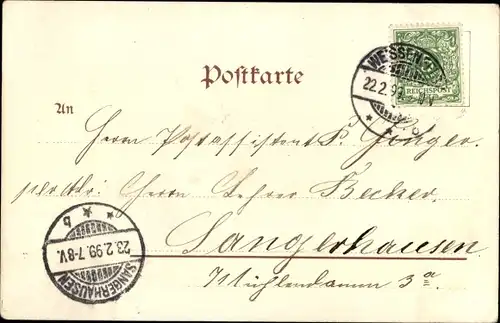 Postkarte
WEISSENF
22.2.99
REICHSPOST
An
Herrn Postassistent P.
Herrn Lehrer Becker.
Sangerhausen.
Mühlendamm 3a
SANGERHAUSEN
23.2.99.7-8V.
b